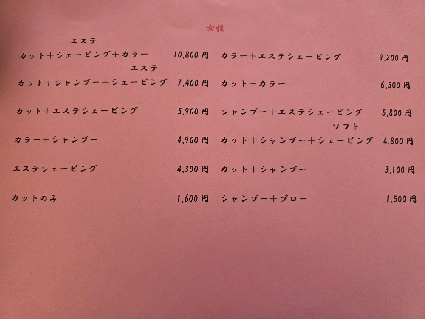 女性
エステ
カット+シェービング+カラー 10,800円
エステ
カット+シャンプー+シェービング 7,400円
カット+エステシェービング 5,900円
カラー+シャンプー 4,900円
エステシェービング 4,300円
カットのみ 1,600円
カラー+エステシェービング 9,200円
カット+カラー 6,500円
シャンプー+エステシェービング 5,800円
ソフト
カット+シャンプー+シェービング 4,800円
カット+シャンプー 3,100円
シャンプー+ブロー 1,500円